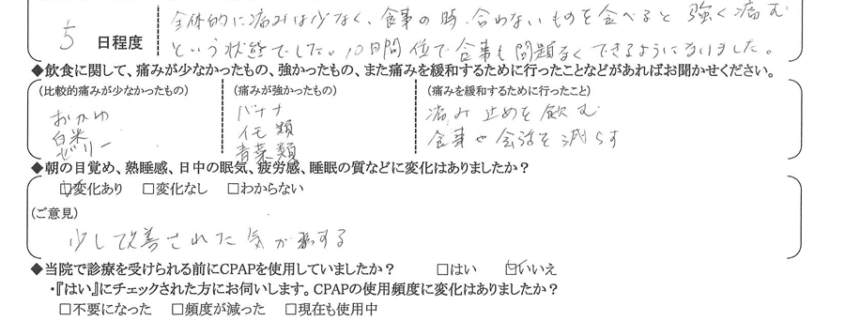 全体的に痛みは少なく、食事の時、合わないものを食べると強く痛む
5 日程度 という状態でした。10日間位で食事も問題なくできるようになりました。
◆飲食に関して、痛みが少なかったもの、強かったもの、また痛みを緩和するために行ったことなどがあればお聞かせください。
(比較的痛みが少なかったもの) (痛みが強かったもの) (痛みを緩和するために行ったこと)
おかゆ バナナ 痛み止めを飲む
白米 イモ類 食事や会話を減らす
ゼリー 青菜類
◆朝の目覚め、熟睡感、日中の眠気、疲労感、睡眠の質などに変化はありましたか？
☑変化あり □変化なし □わからない
(ご意見)
少し改善された気がする
◆当院で診療を受けられる前にCPAPを使用していましたか？ □はい ☑いいえ
・『はい』にチェックされた方にお伺いします。CPAPの使用頻度に変化はありましたか？
□不要になった □頻度が減った □現在も使用中